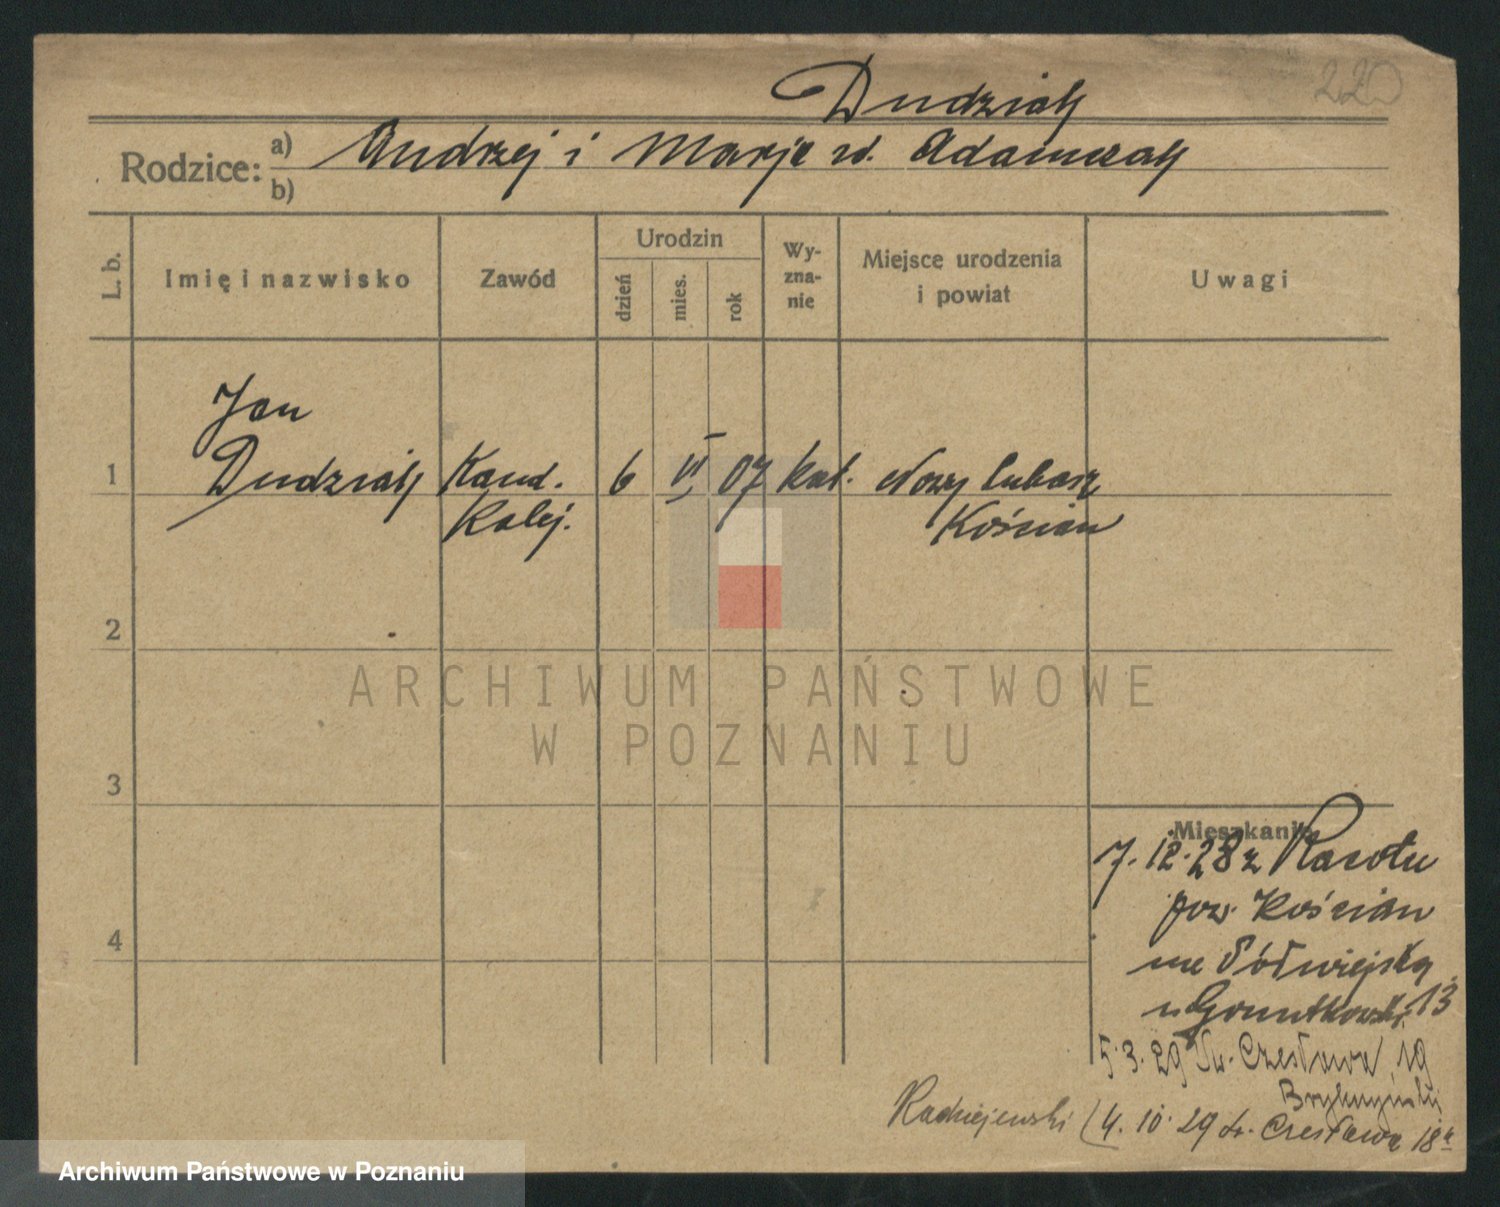 220
Dudziak
Rodzice: a) Andrzej i Marja zd. Adamczak
b)
L. b.
Imię i nazwisko
Zawód
Urodzin
dzień
mies.
rok
Wy-
zna-
nie
Miejsce urodzenia
i powiat
Uwagi
Jan
1 Dudziak Kand. 6 VI 07 kat. Nowy Lubosz
Kolej. Kościan
2
3
4
Mieszkanie
7.12.28 z Racotu
pow. Kościan
na Półwiejską 13
u
5.3.29 Św. Czesława 19
Radziejewski 4.10.29 Św. Czesława 18a
ARCHIWUM PAŃSTWOWE
W POZNANIU
Archiwum Państwowe w Poznaniu